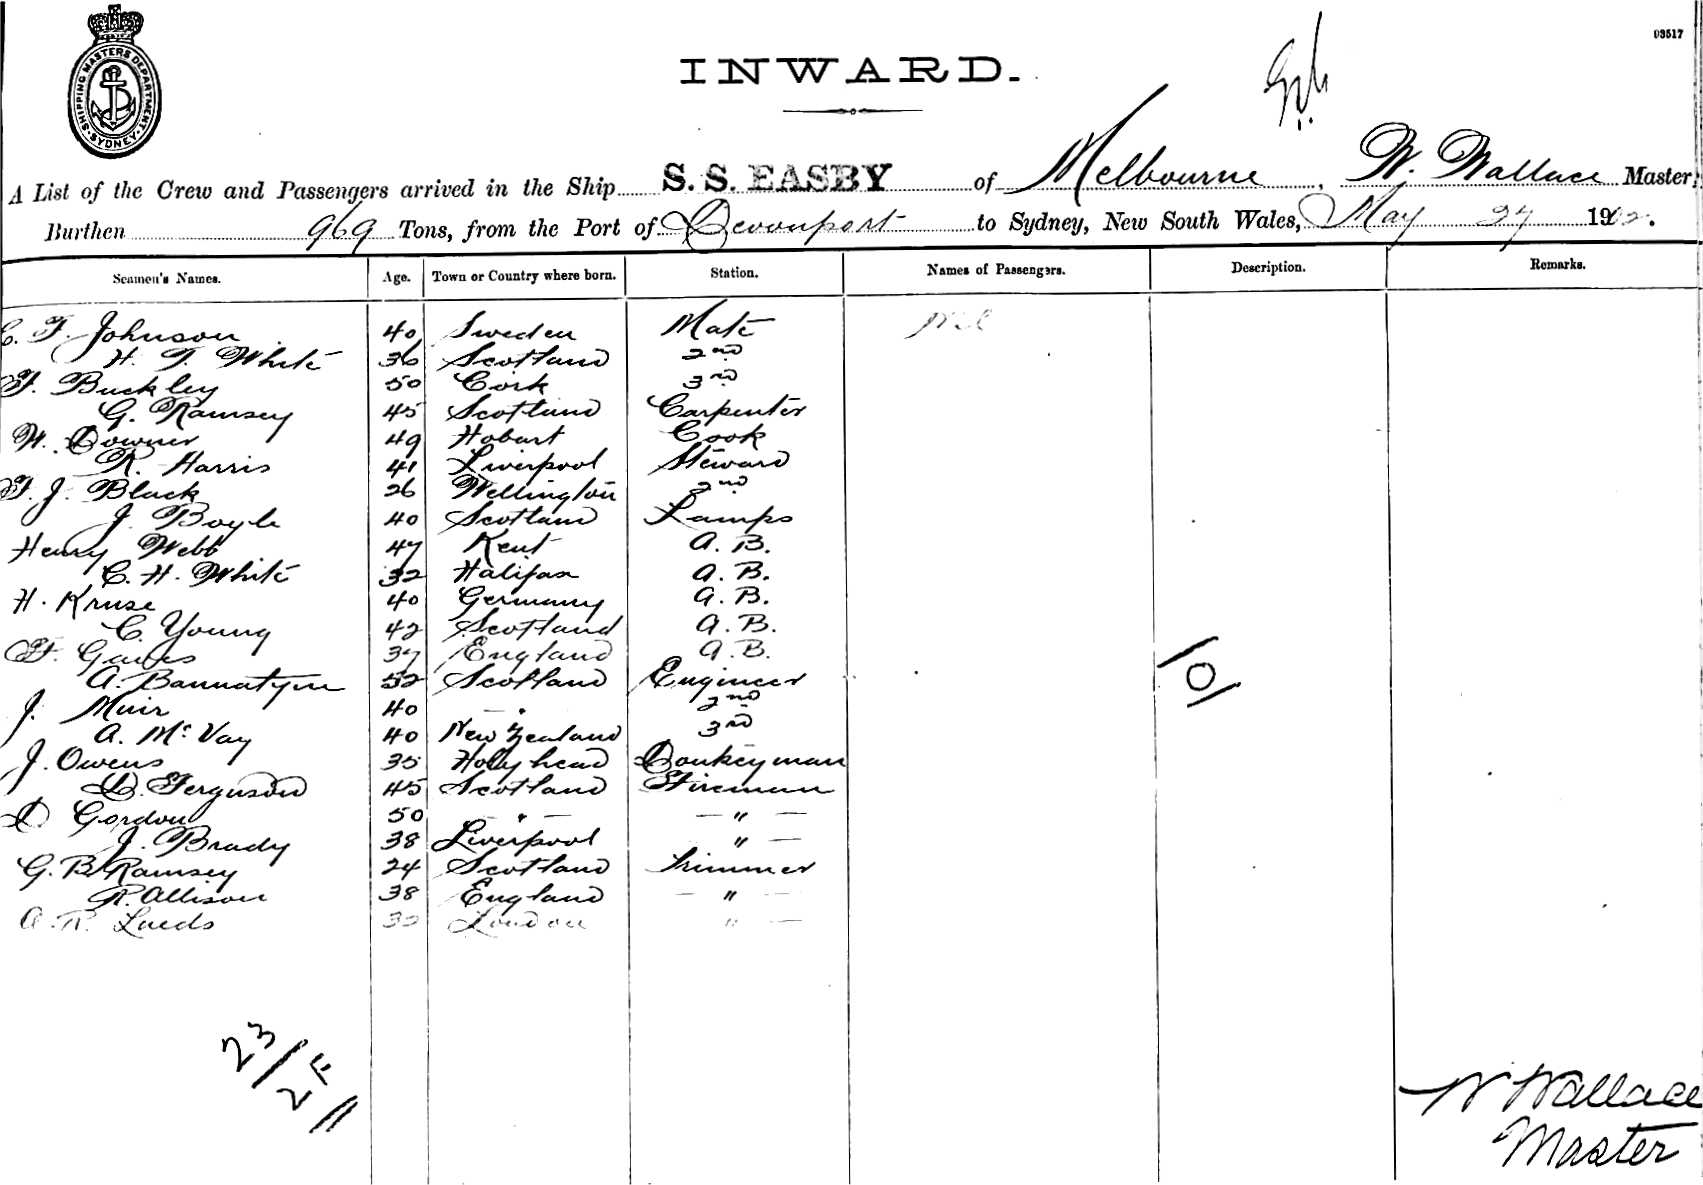 SHIPPING MASTERS DEPARTMENT
SYDNEY
03517
INWARD.
A List of the Crew and Passengers arrived in the Ship S.S. EASBY of Melbourne, W. Wallace Master,
Burthen 969 Tons, from the Port of Devonport to Sydney, New South Wales, May 27 1902.
Seamen's Names. Age. Town or Country where born. Station. Names of Passengers. Description. Remarks.
C. F. Johnson 40 Sweden Mate Nil
H. T. White 36 Scotland 2nd
F. Buckley 50 Cork 3rd
G. Ramsey 45 Scotland Carpenter
W. Downer 49 Hobart Cook
R. Harris 41 Liverpool Steward
F. J. Black 26 Wellington 2nd
J. Boyle 40 Scotland Lamps
Henry Webb 47 Kent A. B.
C. H. White 32 Halifax A. B.
H. Kruse 40 Germany A. B.
C. Young 42 Scotland A. B.
F. 37 England A. B.
A. Bannatyne 52 Scotland Engineer
J. Muir 40 — " 2nd
A. McVay 40 New Zealand 3rd
J. Owens 35 Holyhead Donkeyman
D. Ferguson 45 Scotland Fireman
D Gordon 50 — " — — " —
J. Brady 38 Liverpool " —
G. B. Ramsey 24 Scotland Trimmer
R. Allison 38 England — " —
A. R. 32 London " —
101
23/
2F
W Wallace
Master